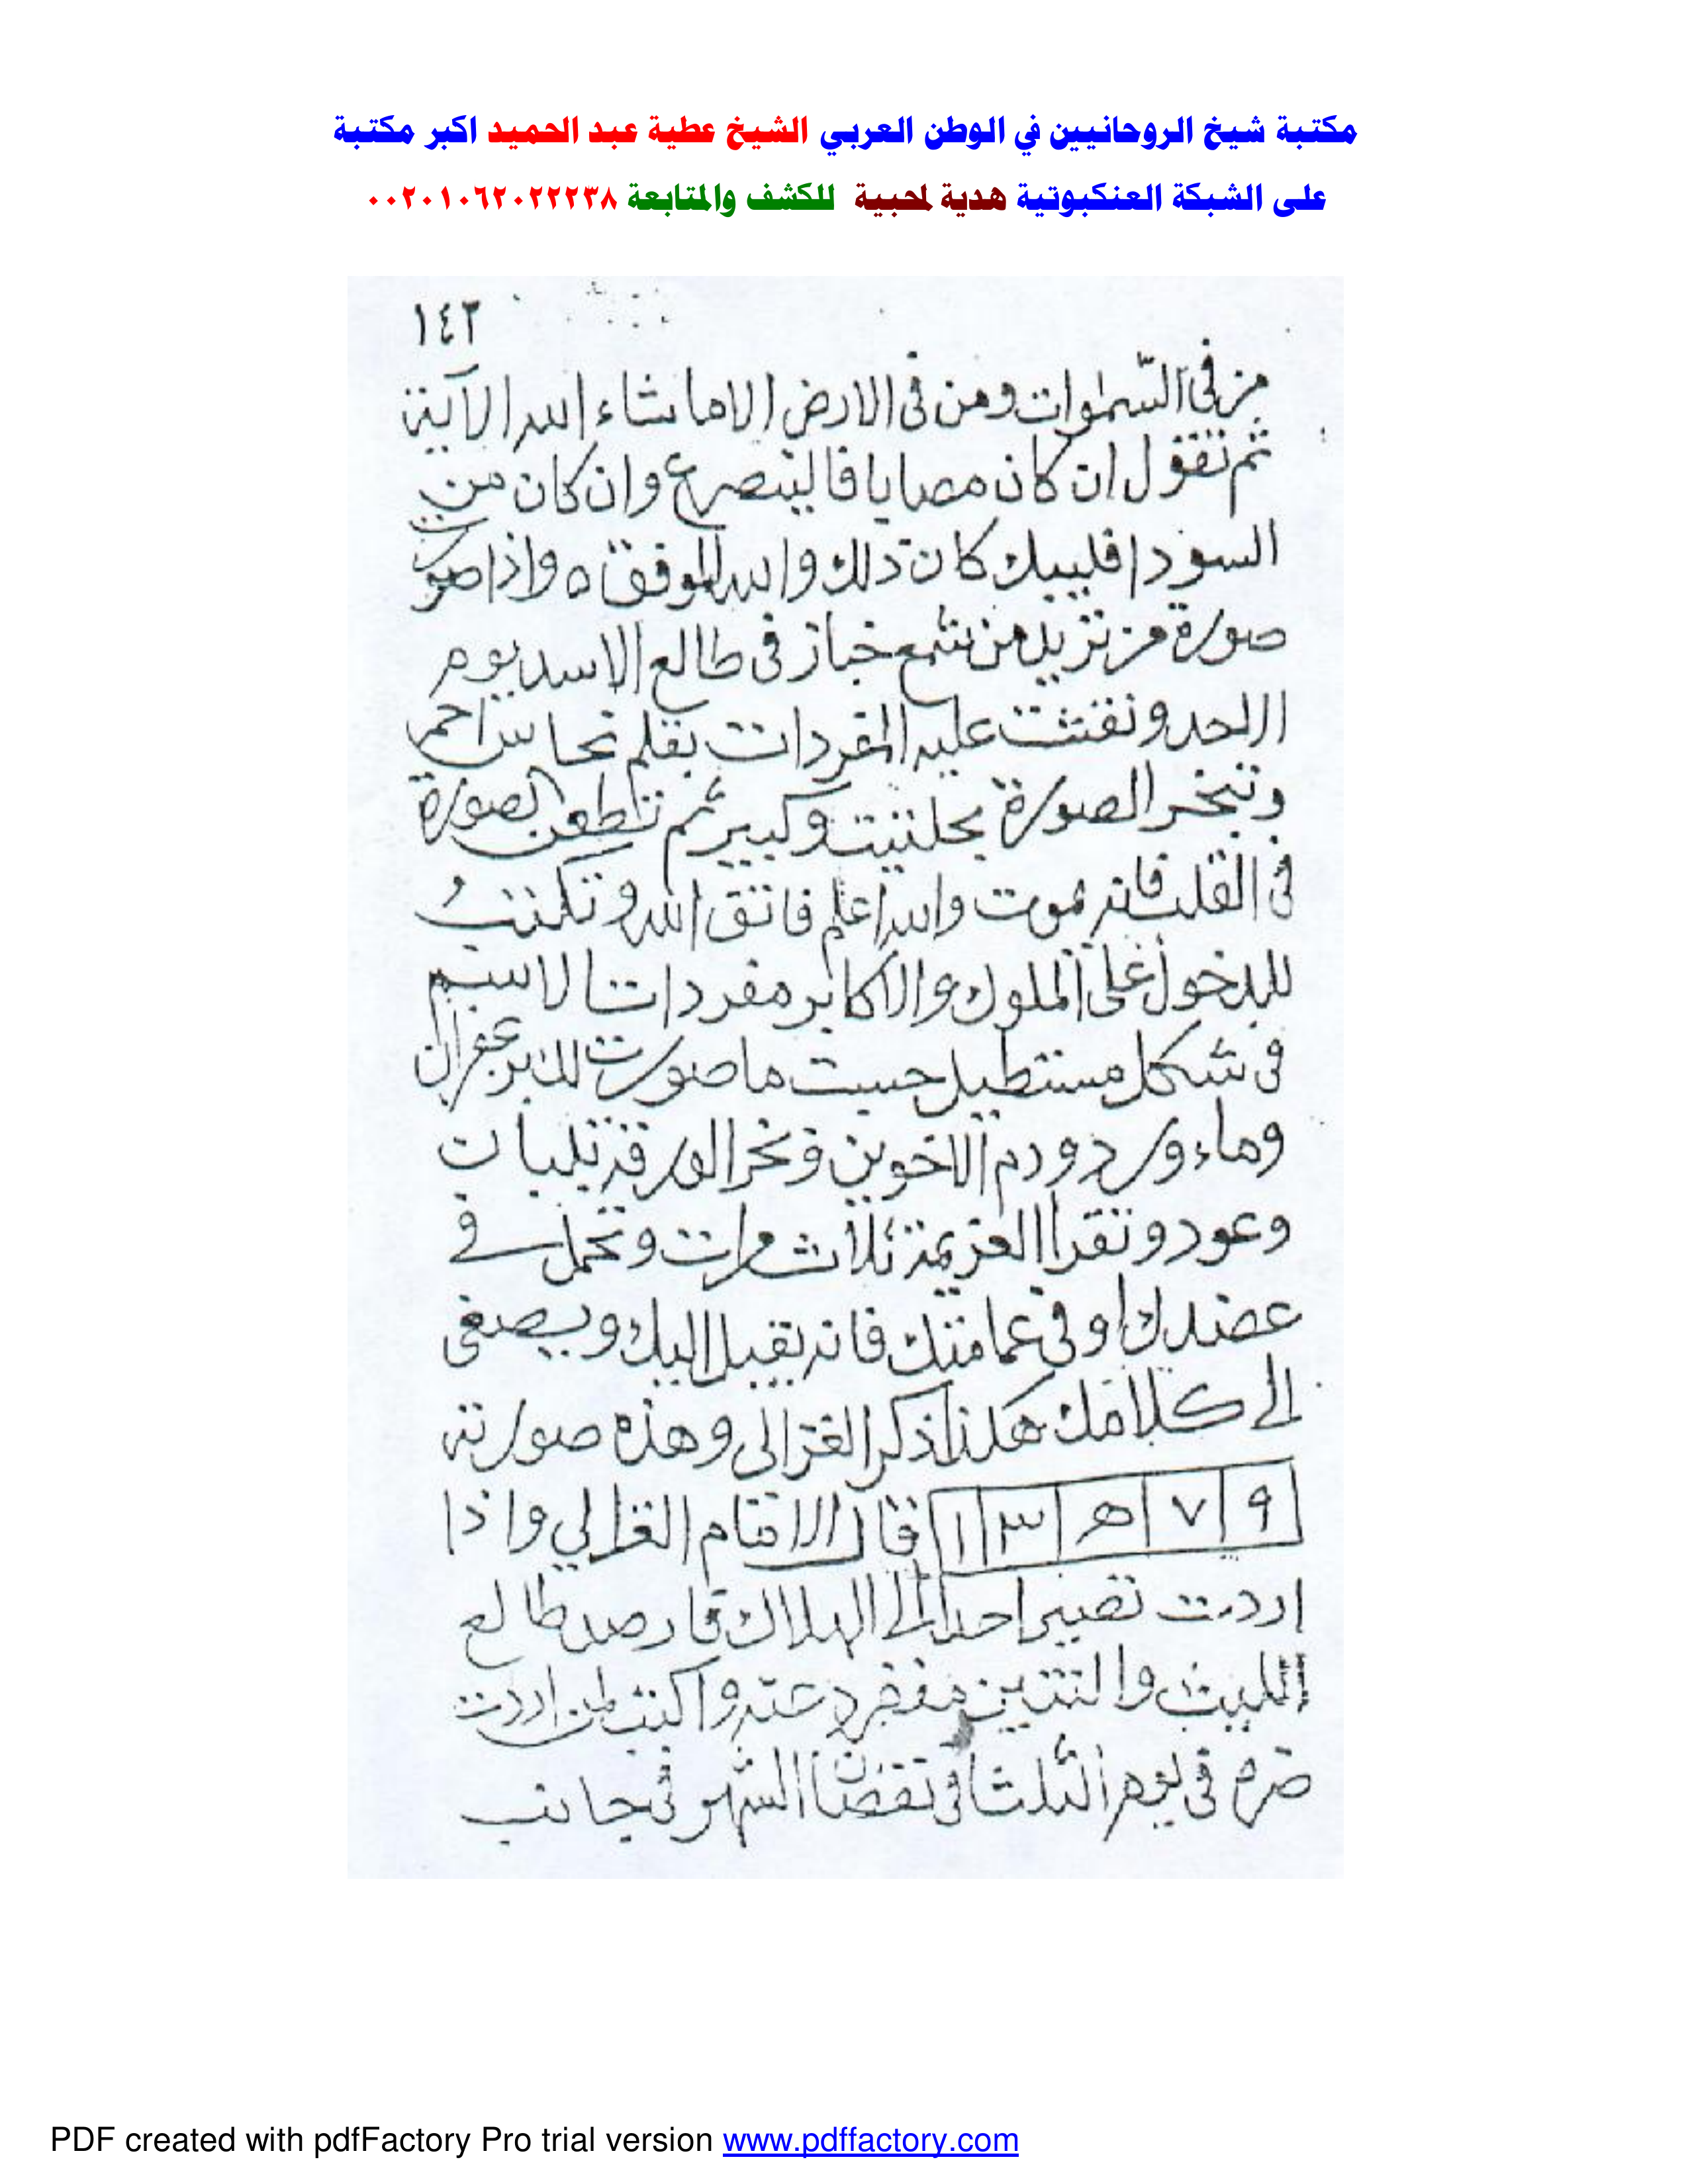 مكتبة شيخ الروحانيين في الوطن العربي الشيخ عطية عبد الحميد اكبر مكتبة
على الشبكة العنكبوتية هدية لمحبية للكشف والمتابعة ٠٠٢٠١٠٦٢٠٢٢٢٣٨
١٤٢
من في السموات ومن في الارض الا ما شاء الله الآية
ثم تقول ان كان مصابا فالينصرع وان كان من
السودا فليبك كان ذلك والله الموفق ٥ واذا صورت
صورة من تريد من شمع خباز في طالع الاسد يوم
الاحد ونقشت عليه المفردات بقلم نحاس احمر
وتبخر الصورة بحلتيت وكبير ثم تطعن الصورة
في القلب فانه يموت والله اعلم فاتق الله وتكتب
للدخول على الملوك والاكابر مفردات الاسم
في شكل مستطيل حسبت ما صورت لك بزعفران
وماء ورد ودم الاخوين وبخر الورقة بلبان
وعود وتقرا العزيمة ثلاث مرات وتحمل في
عضدك او في عمامتك فانه يقبل اليك ويصغى
الى كلامك هكذا ذكر الغزالى وهذه صورته
٩ ٧ ه ٣ ١ قال الامام الغزالي واذا
اردت تصير احدا الى الهلاك فارصد طالع
الليث والتنين مفرد عنه واكتب لمن اردت
ضره في يوم الثلثا في نقصان الشهر في جانب
PDF created with pdfFactory Pro trial version www.pdffactory.com